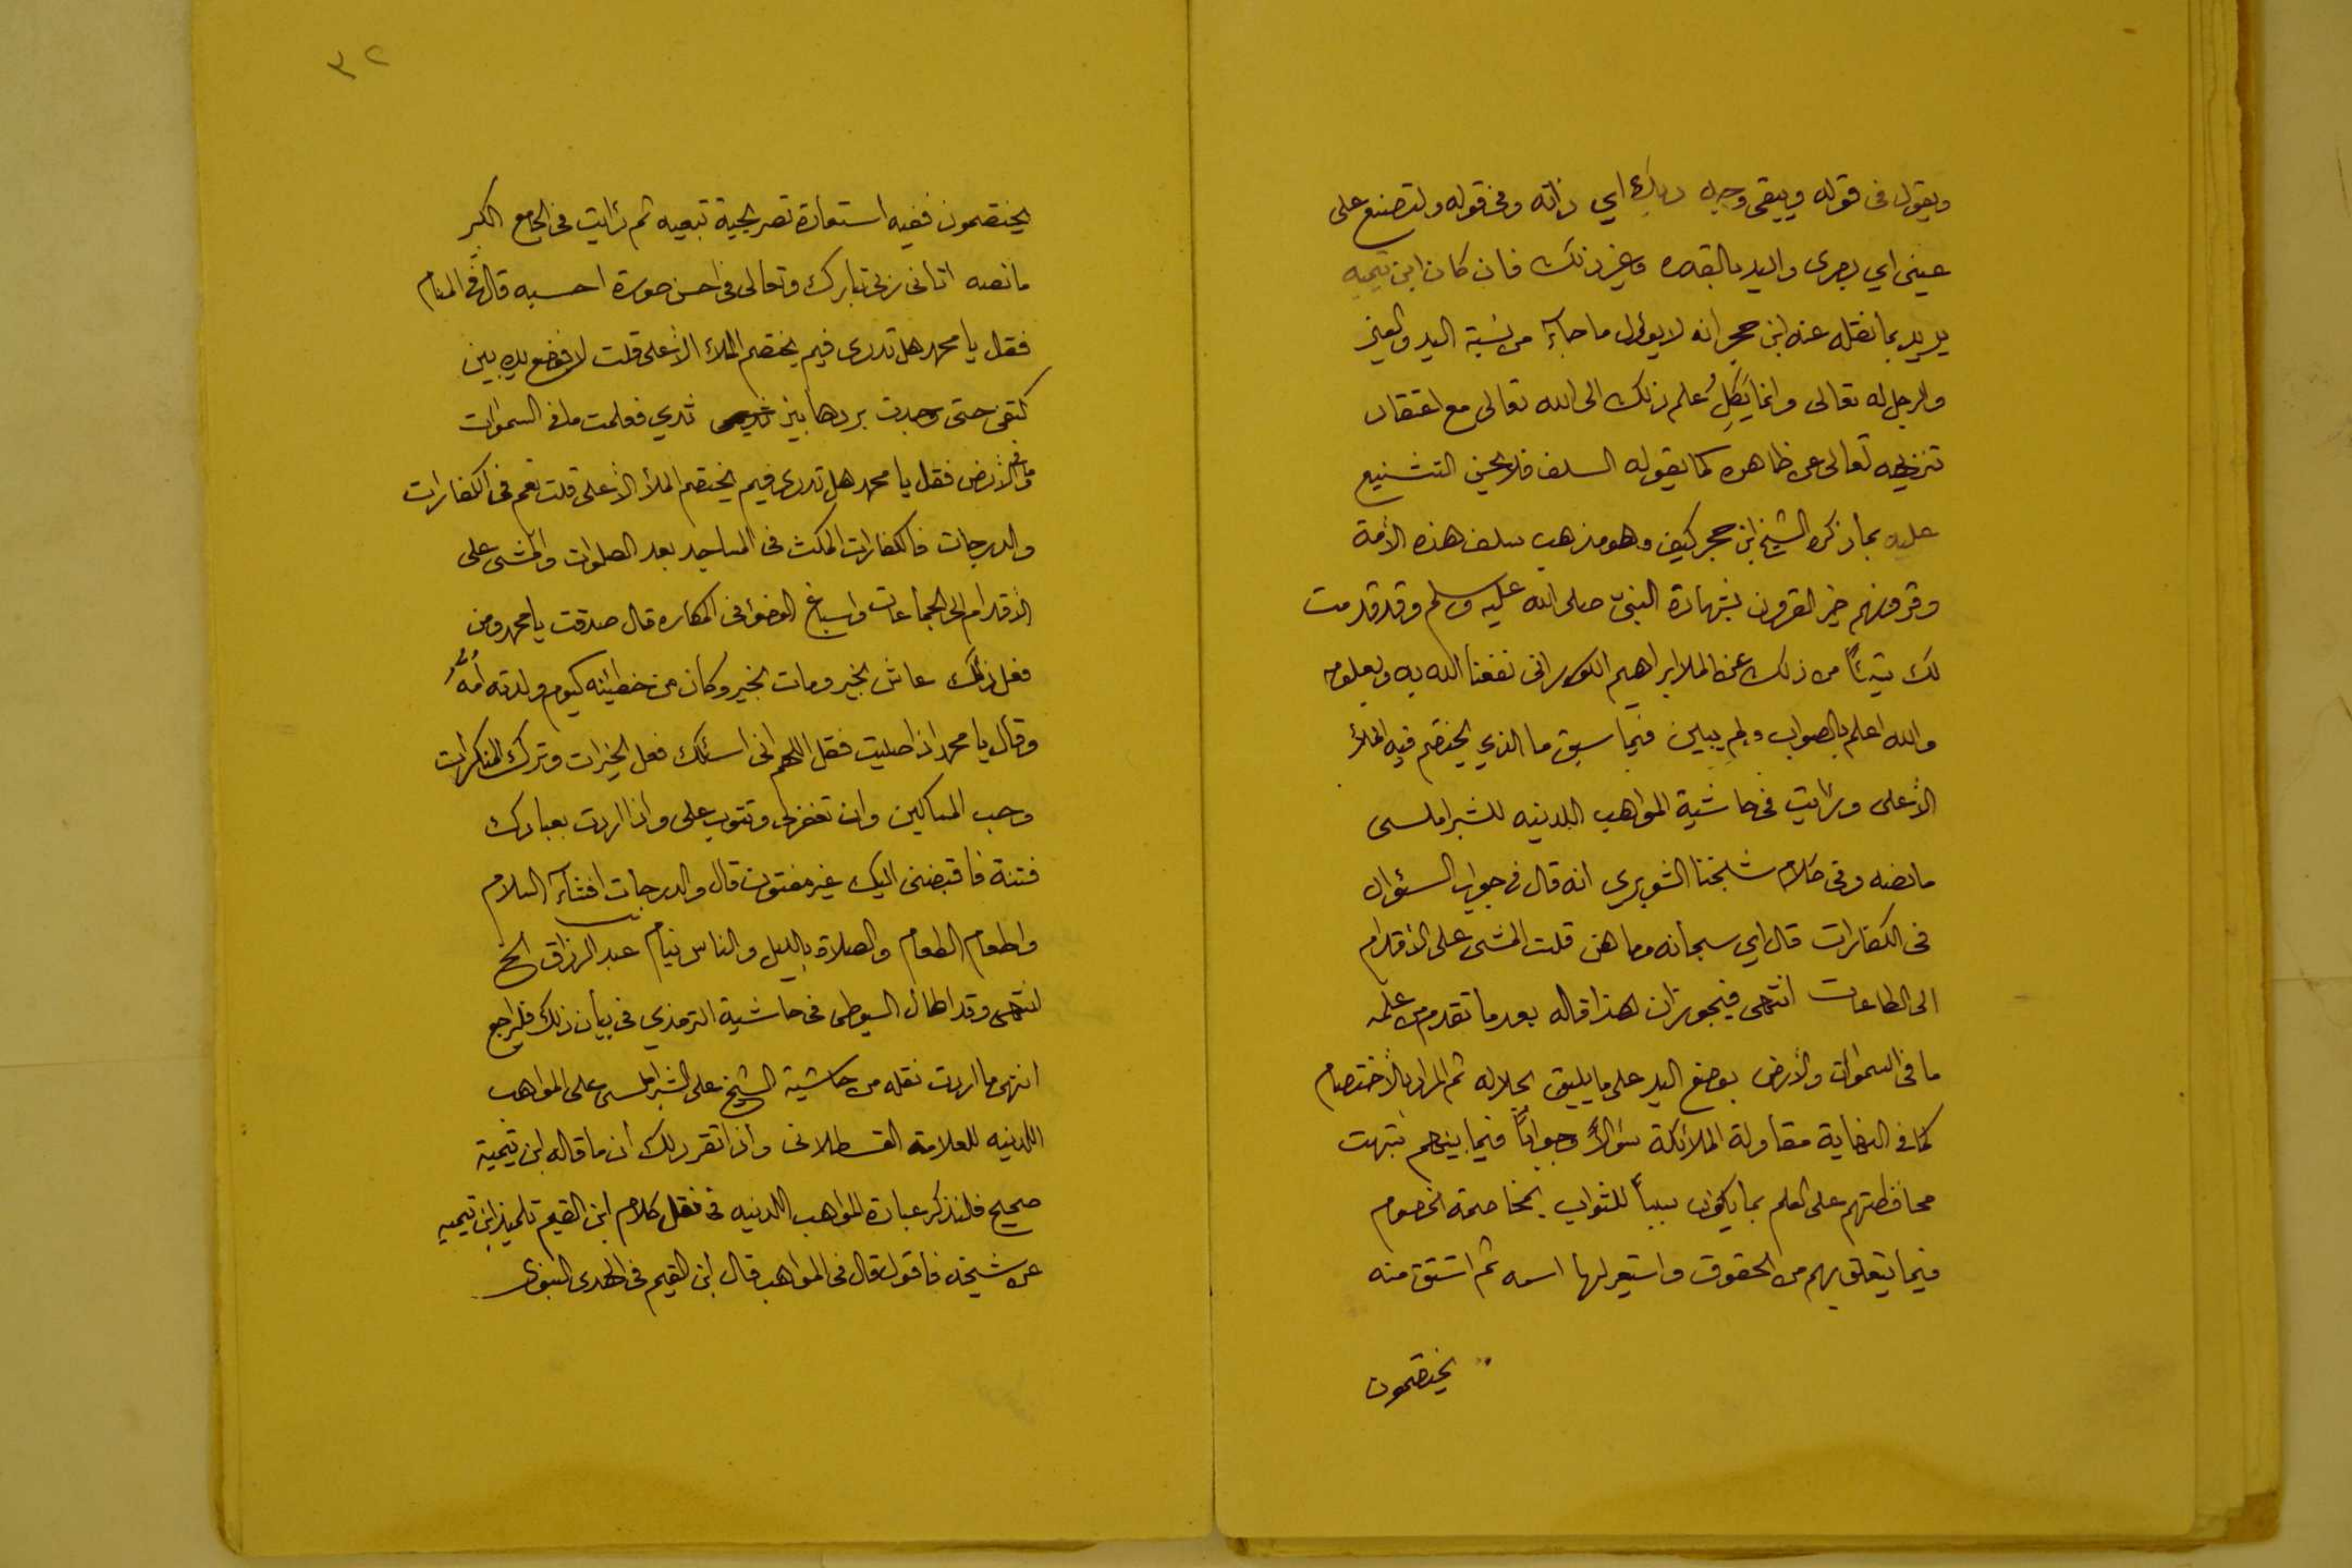 ويقول فى قوله ويبقى وجه ربك اي ذاته وفى قوله ولتصنع على
عينى اي بصرى واليد بالقدره وغير ذلك فان كان ابن تيميه
يريد بما نقله عنه ابن حجر انه لا يوئول ما جآء من نسبة اليد والعين
والرجل له تعالى وانما يَكِلُ علم ذلك الى الله تعالى مع اعتقاد
تنزيهه تعالى عن ظاهره كما يقوله السلف فلا يحسن التشنيع
عليه بما ذكره الشيخ ابن حجر كيف وهو مذهب سلف هذه الأمة
وقرونهم خير القرون بشهادة النبى صلى الله عليه وسلم وقد قدمت
لك شيئاً من ذلك عن الملا ابراهيم الكورانى نفعنا الله به وبعلومه
والله اعلم بالصواب ولم يبين فيما سبق ما الذي يختصم فيه الملأ
الأعلى ورأيت فى حاشية المواهب اللدنيه للشبراملسى
ما نصه وفى كلام شيخنا الشوبرى انه قال فى جواب السؤال
فى الكفارات قال اي سبحانه وما هن قلت المشى على الأقدام
الى الطاعات انتهى فيجوز ان هذا قاله بعد ما تقدم من علمه
ما فى السموات والأرض بوضع اليد على ما يليق بجلاله ثم المراد بالأختصام
كما فى النهاية مقاولة الملائكة سؤالاً وجواباً فيما بينهم شبهت
محافظتهم على العلم بما يكون سبباً للثواب بمخاصمة الخصوم
فيما يتعلق بهم من الحقوق واستعير لها اسمه ثم اشتق منه
يختصمون
٣٢
يختصمون ففيه استعارة تصريحية تبعيه ثم رأيت فى الجامع الكبير
ما نصه اتانى ربى تبارك وتعالى فى احسن صورة احسبه قال فى المنام
فقال يا محمد هل تدرى فيم يختصم الملاء الأعلى قلت لا فوضع يده بين
كتفى حتى وجدت بردها بين ثديي فعلمت ما فى السموات
وما فى الأرض فقال يا محمد هل تدرى فيم يختصم الملأ الأعلى قلت نعم فى الكفارات
والدرجات فالكفارات المكث فى المساجد بعد الصلوات والمشى على
الأقدام الى الجماعات واسباغ الوضؤ فى المكاره قال صدقت يا محمد ومن
فعل ذلك عاش بخير ومات بخير وكان من خطيئته كيوم ولدته أمُّه
وقال يا محمد اذا صليت فقل اللهم انى اسئلك فعل الخيرات وترك المنكرات
وحب المساكين وان تغفر لى وتتوب على واذا اردت بعبادك
فتنة فاقبضنى اليك غير مفتون قال والدرجات افشآء السلام
واطعام الطعام والصلاة بالليل والناس نيام عبد الرزاق الخ
انتهى وقد اطال السيوطى فى حاشية الترمذي فى بيان ذلك فليراجع
انتهى ما اردت نقله من حاشية الشيخ على الشبراملسى على المواهب
اللدنيه للعلامة القسطلانى واذا تقرر لك ان ما قاله ابن تيمية
صحيح فلنذكر عبارة المواهب اللدنيه فى نقل كلام ابن القيم تلميذ ابن تيميه
عن شيخه فاقول قال فى المواهب قال ابن القيم فى الهدى النبوى